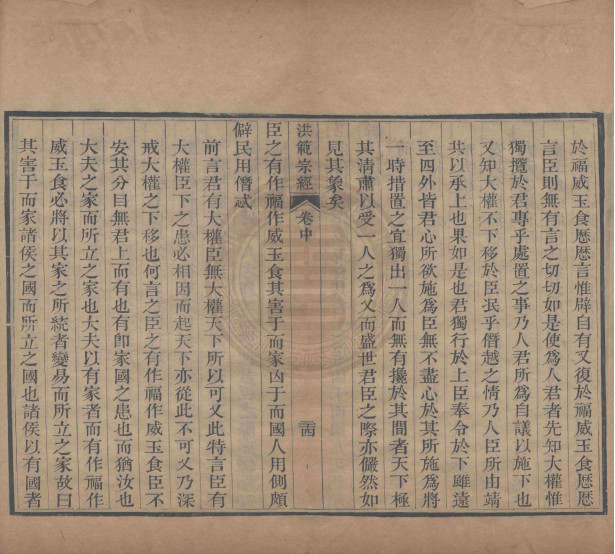 於福威玉食歷歷言惟辟自有又復於福威玉食歷歷
言臣則無有言之切切如是使為人君者先知大權惟
獨攬於君專乎處置之事乃人君所為自議以施下也
又知大權不下移於臣泯乎僭越之情乃人臣所由靖
共以承上也果如是也君獨行於上臣奉令於下雖遠
至四外皆君心所欲施為臣無不盡心於其所施為將
一時措置之宜獨出一人而無有攙於其間者天下極
其清肅以受一人之為乂而盛世君臣之際亦儼然如
見其象矣
洪範宗經 卷中 二十四
臣之有作福作威玉食其害于而家凶于而國人用側頗
僻民用僭忒
前言君有大權臣無大權天下所以可乂此特言臣有
大權臣下之患必相因而起天下亦從此不可乂乃深
戒大權之下移也何言之臣之有作福作威玉食臣不
安其分目無君上而有也有即家國之患也而猶汝也
大夫之家而所立之家也大夫以有家者而有作福作
威玉食必將以其家之所統者變易而所立之家故曰
其害于而家諸侯之國而所立之國也諸侯以有國者